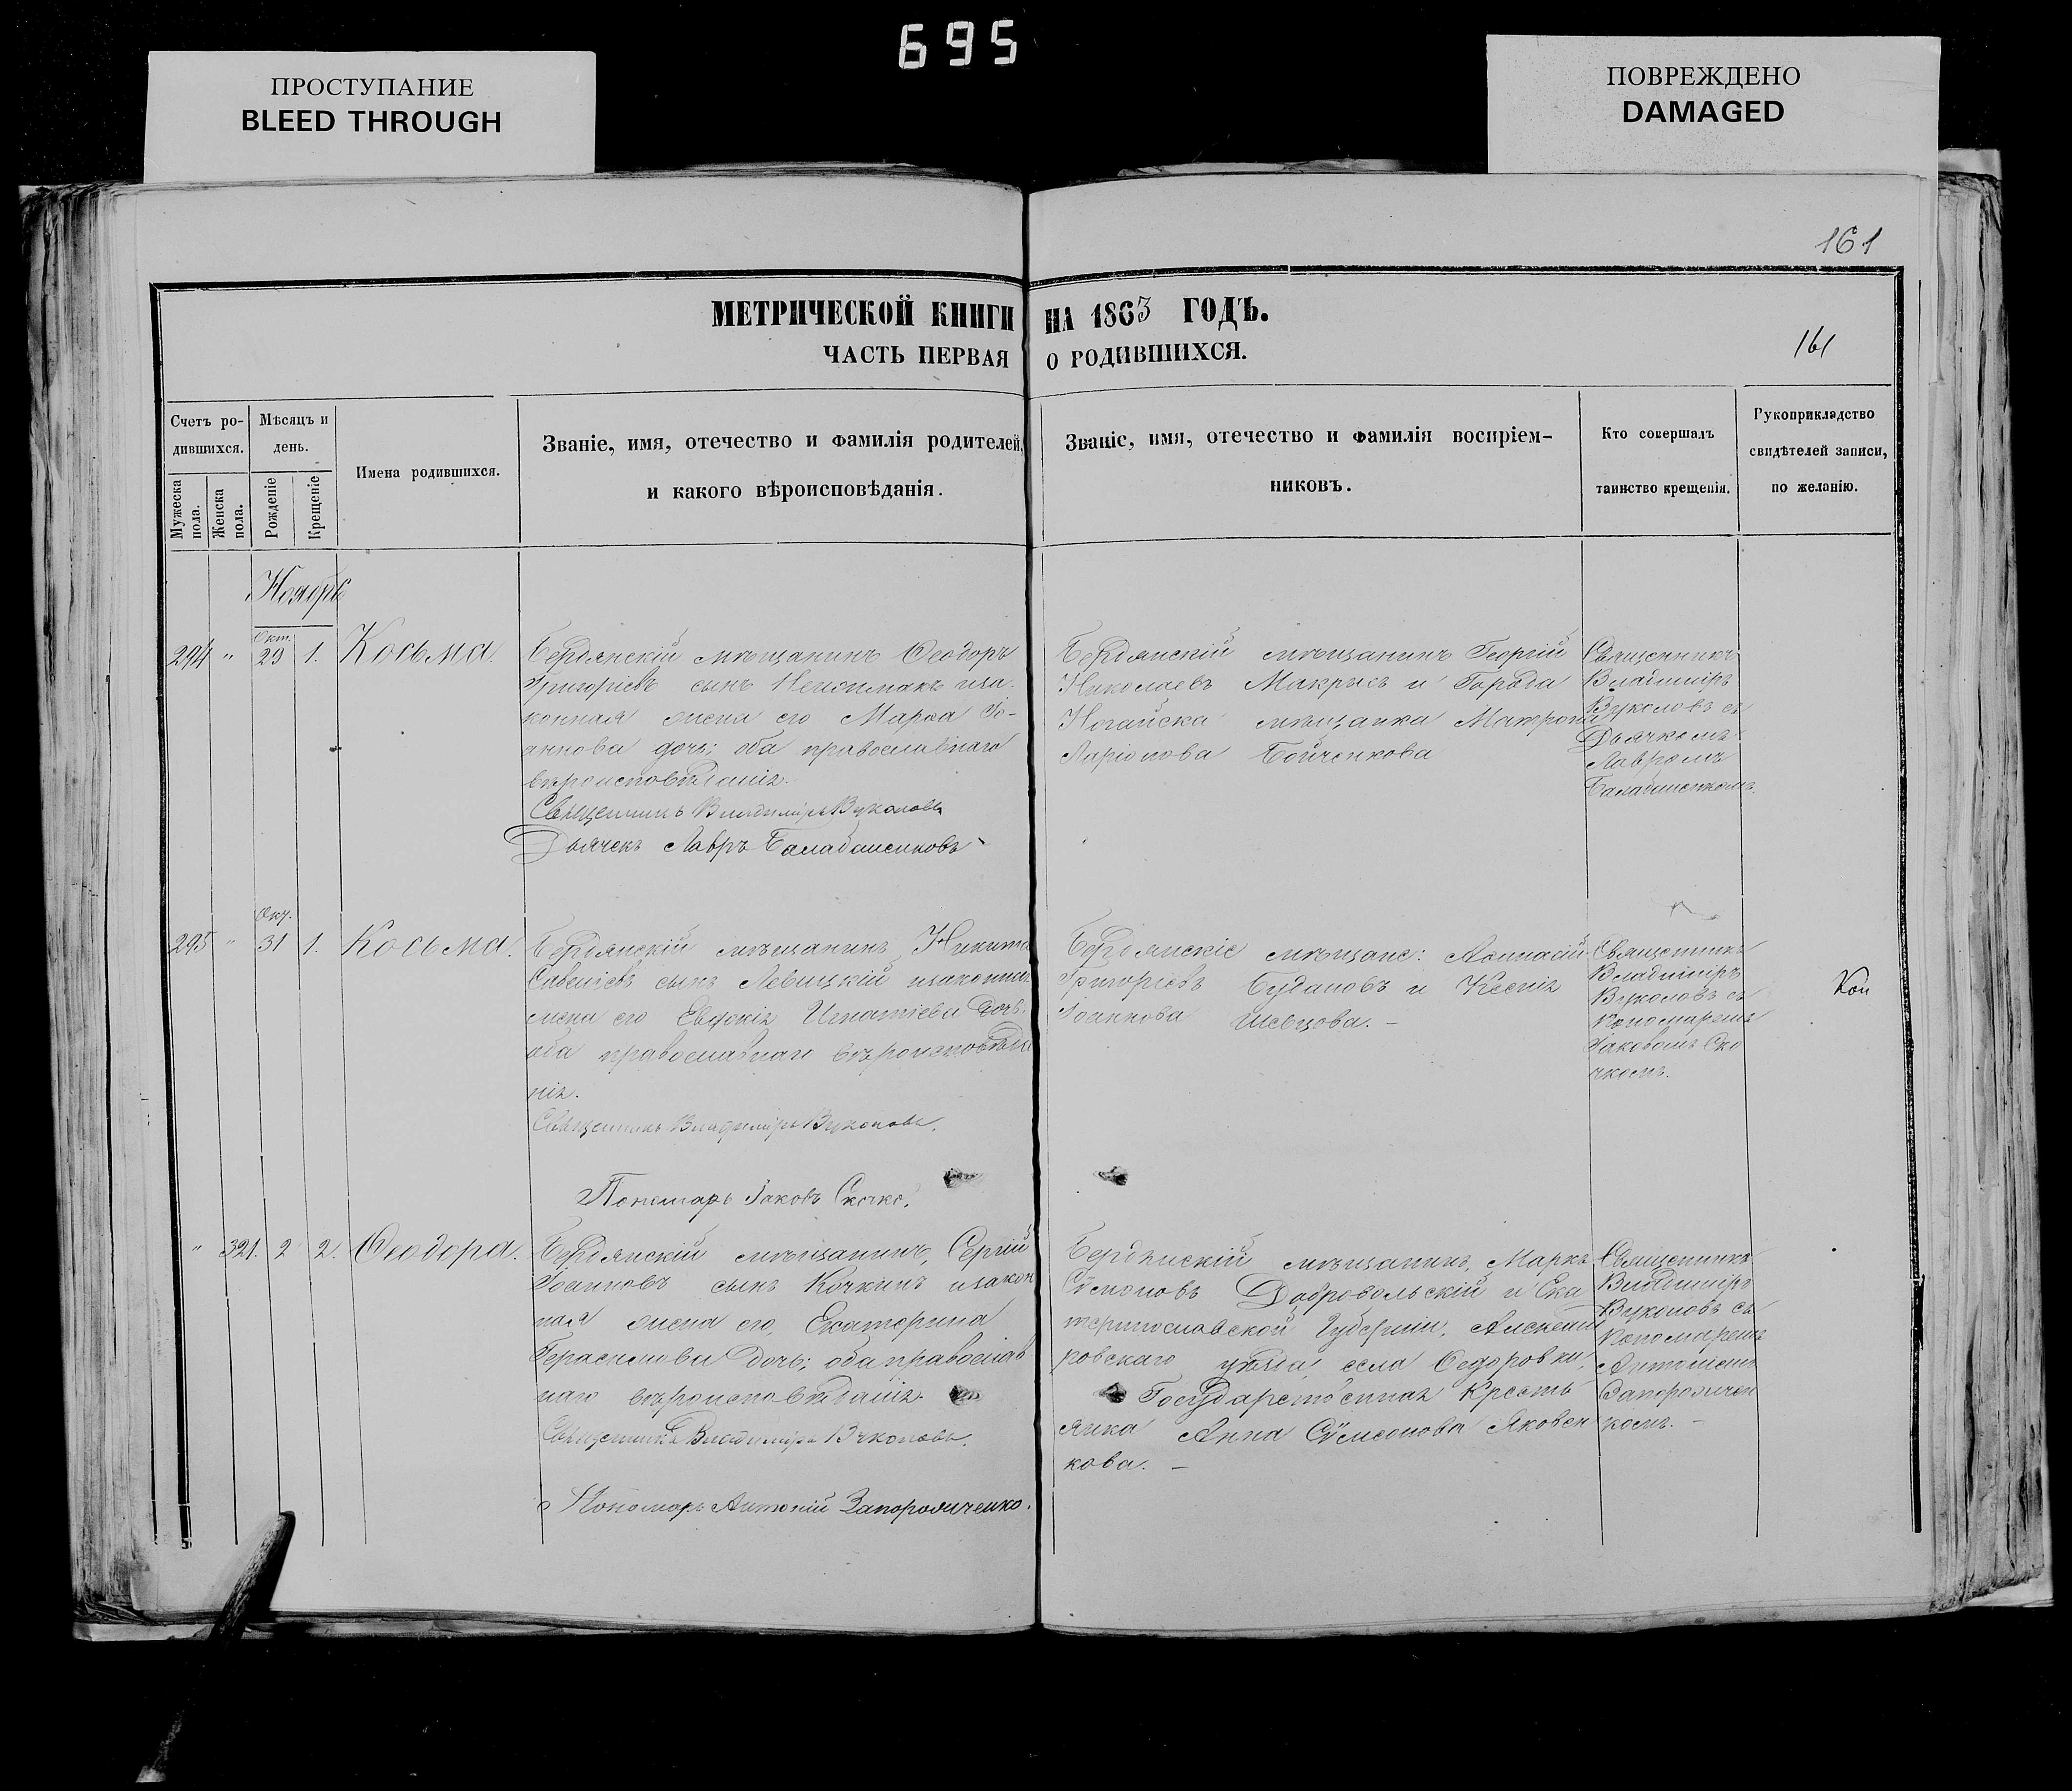 695
ПРОСТУПАНИЕ
BLEED THROUGH
ПОВРЕЖДЕНО
DAMAGED
161
МЕТРИЧЕСКОЙ КНИГИ НА 1863 ГОДЪ.
ЧАСТЬ ПЕРВАЯ О РОДИВШИХСЯ.
161
Счетъ ро-
дившихся.
Мужеска
пола.
Женска
пола.
Мѣсяцъ и
день.
Рожденіе
Крещеніе
Имена родившихся.
Званіе, имя, отечество и фамилія родителей,
и какого вѣроисповѣданія.
Званіе, имя, отечество и фамилія воспріем-
никовъ.
Кто совершалъ
таинство крещенія.
Рукоприкладство
свидѣтелей записи,
по желанію.
Ноябрь
294 " Окт. 29 1. Косьма.
Бердянскій мѣщанинъ Ѳеодоръ
Григоріевъ сынъ иза-
конная жена его Марѳа Іо-
аннова дочь; оба православнаго
вѣроисповѣданія.
Священникъ Владиміръ Вуколовъ
Дьячекъ Лавръ Балабаненковъ
Бердянскій мѣщанинъ Георгій
Николаевъ Макрысъ и Города
Ногайска мѣщанка Матрона
Ларіонова Бойченкова
Священникъ
Владиміръ
Вуколовъ съ
Дьячкомъ
Лавромъ
Балабаненкомъ.
295 " Окт. 31 1. Косьма.
Бердянскій мѣщанинъ Никита
Савеліевъ сынъ Левицкій изаконная
жена его Евдокія Игнатіева дочь.
оба православнаго вѣроисповѣда
нія.
Священникъ Владиміръ Вуколовъ.
Пономарь Іаковъ Скочко.
Бердянскіе мѣщане: Аѳанасій
Григоріевъ Будановъ и Ксенія
Іоаннова Шевцова. -
Священникъ
Владиміръ
Вуколовъ съ
Пономаремъ
Іаковомъ Ско
чкомъ.
Кои
" 321. 2 2. Ѳеодора.
Бердянскій мѣщанинъ, Сергій
Іоанновъ сынъ Кочкинъ изакон
ная жена его, Екатерина
Герасимова дочь; оба православ
наго вѣроисповѣданія.
Священникъ Владиміръ Вуколовъ.
Пономарь Антоній Запорожченко.
Бердянскій мѣщанинъ, Маркъ
Сѵмоновъ Добровольскій и Ека
теринославской Губерніи, Александ
ровскаго уѣзда, села Ѳедоровки,
Государственная Кресть
янка Анна Сѵмеонова Яковен
кова. -
Священникъ
Владиміръ
Вуколовъ съ
Пономаремъ
Антоніемъ
Запорожчен
комъ. -